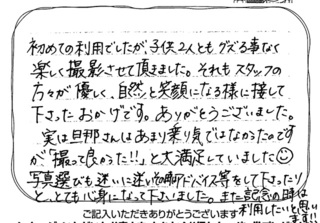 初めての利用でしたが、子供2人とも、グズる事なく
楽しく撮影させて頂きました。それもスタッフの
方々が優しく、自然と笑顔になる様に接して
下さったおかげです。ありがとうございました。
実は旦那さんはあまり乗り気ではなかったのです
が「撮って良かった!!」と大満足していました☺
写真選びも迷いに迷い アドバイス等をして下さったり
と、とても心身になって下さいました。また記念の時は
利用したいと思い
ご記入いただきありがとうございます
ます。